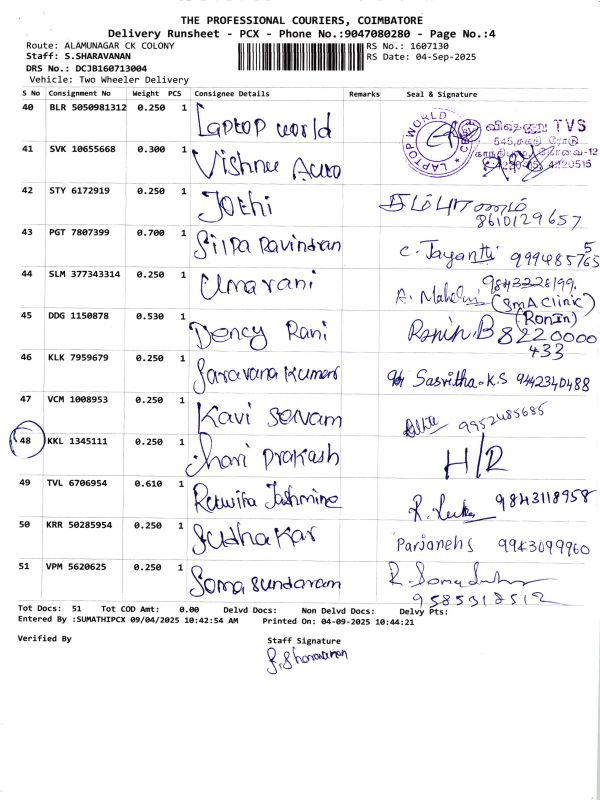 THE PROFESSIONAL COURIERS, COIMBATORE
Delivery Runsheet - PCX - Phone No.:9047080280 - Page No.:4
Route: ALAMUNAGAR CK COLONY RS No.: 1607130
Staff: S.SHARAVANAN RS Date: 04-Sep-2025
DRS No.: DCJB160713004
Vehicle: Two Wheeler Delivery
S No Consignment No Weight PCS Consignee Details Remarks Seal & Signature
40 BLR 5050981312 0.250 1 Laptop world LAPTOP WORLD
விஷ்ணு TVS
41 SVK 10655668 0.300 1 Vishnu Auto
42 STY 6172919 0.250 1 Jothi
8610129657
43 PGT 7807399 0.700 1 Silpa Ravindran C. Jayantti
44 SLM 377343314 0.250 1 Umarani 9843228199
(SMA Clinic)
(Ronin)
45 DDG 1150878 0.530 1 Dency Rani Ronin.B 8220000
433
46 KLK 7959679 0.250 1 Saravana Kumar Sasritha.K.S 9442340488
47 VCM 1008953 0.250 1 Kavi Selvam 9952485685
48 KKL 1345111 0.250 1 Hari Prakash H/R
49 TVL 6706954 0.610 1 Jashmine 9843118958
50 KRR 50285954 0.250 1 Sudhakar 9943099960
51 VPM 5620625 0.250 1 Soma sundaram
9585318512
Tot Docs: 51 Tot COD Amt: 0.00 Delvd Docs: Non Delvd Docs: Delvy Pts:
Entered By :SUMATHIPCX 09/04/2025 10:42:54 AM Printed On: 04-09-2025 10:44:21
Verified By Staff Signature
S. Sharavanan